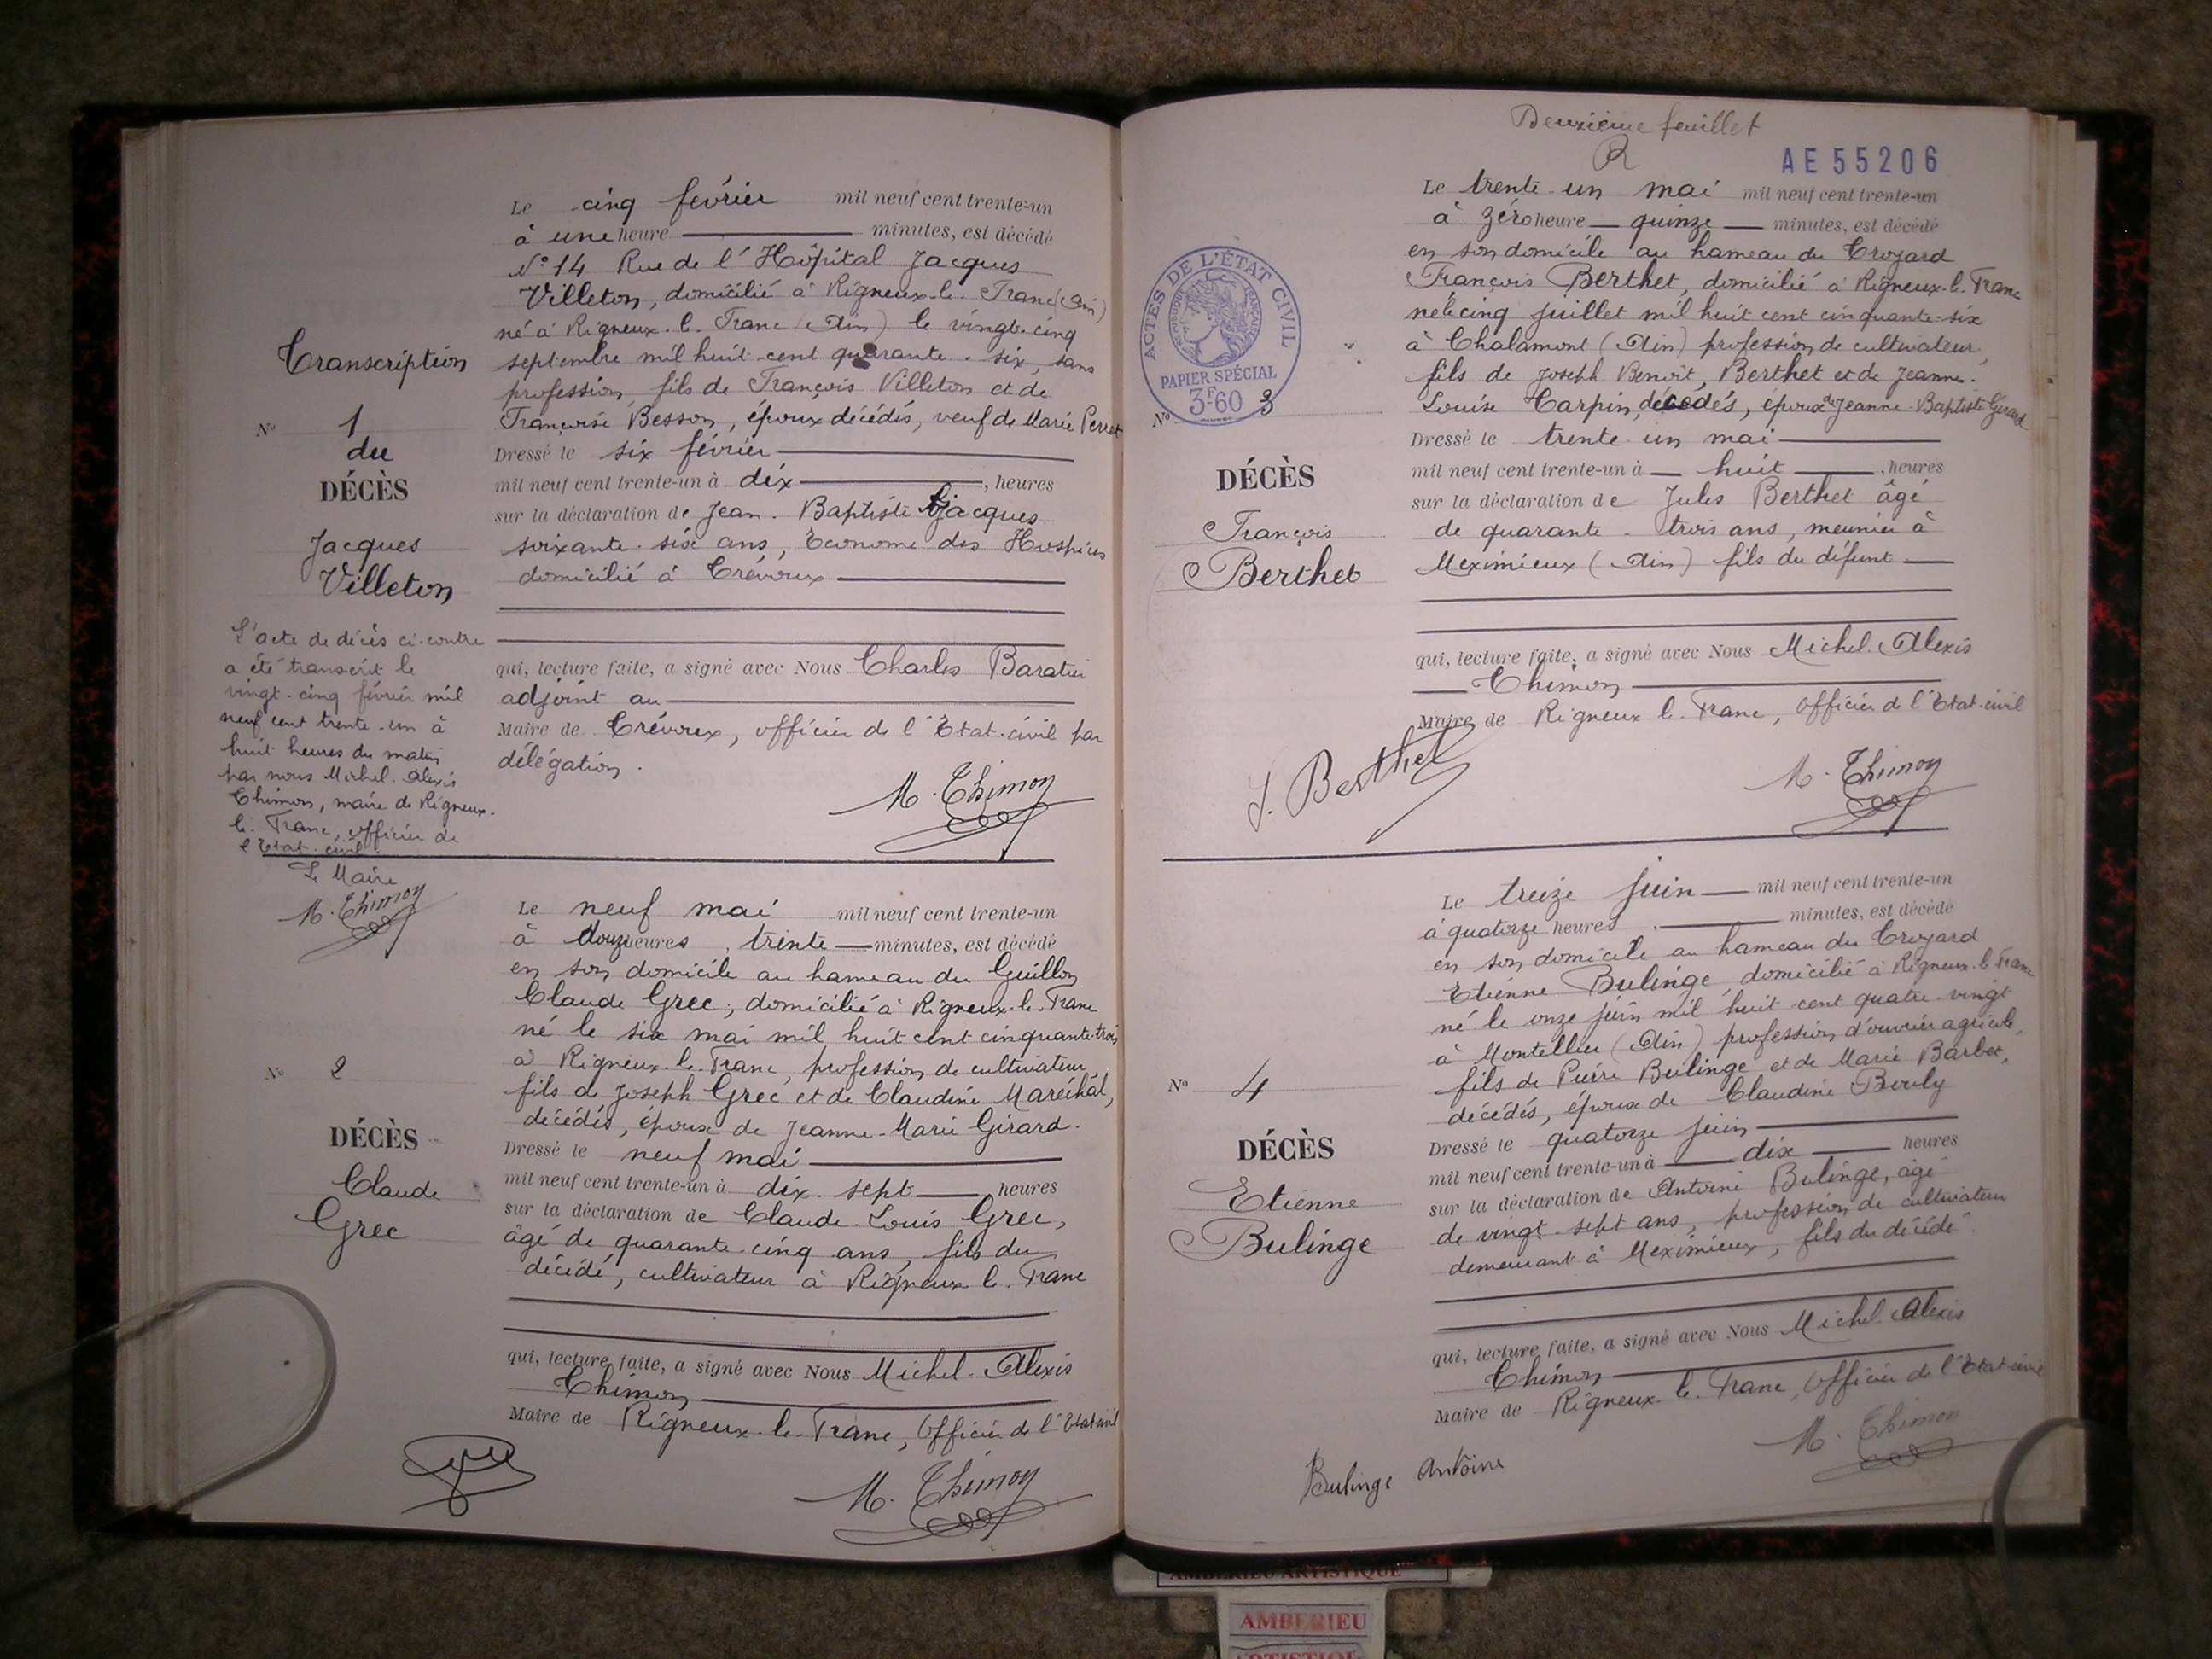 Transcription
N° 1
du
DÉCÈS
Jacques
Villeton
L'acte de décès ci-contre
a été transcrit le
vingt-cinq février mil
neuf cent trente-un à
huit heures du matin
par nous Michel-Alexis
Thimon, maire de Rigneux-
le-Franc, officier de
l'Etat-civil.
Le Maire
M. Thimon
Le cinq février mil neuf cent trente-un
à une heure minutes, est décédé
N° 14 Rue de l'Hôpital Jacques
Villeton, domicilié à Rigneux-le-Franc (Ain)
né à Rigneux-le-Franc (Ain) le vingt-cinq
septembre mil huit-cent quarante-six, sans
profession, fils de François Villeton et de
Françoise Besson, époux décédés, veuf de Marie Perret
Dressé le six février
mil neuf cent trente-un à dix, heures
sur la déclaration de Jean-Baptiste Jacques
soixante-six ans, Econome des Hospices
domicilié à Trévoux
qui, lecture faite, a signé avec Nous Charles Baratin
adjoint au
Maire de Trévoux, officier de l'Etat-civil par
délégation.
M. Thimon
N° 2
DÉCÈS
Claude
Grec
Le neuf mai mil neuf cent trente-un
à douze heures, trente minutes, est décédé
en son domicile au hameau du Guillon
Claude Grec, domicilié à Rigneux-le-Franc
né le six mai mil huit cent cinquante-trois
à Rigneux-le-Franc, profession de cultivateur,
fils de Joseph Grec et de Claudine Maréchal,
décédés, époux de Jeanne-Marie Girard.
Dressé le neuf mai
mil neuf cent trente-un à dix-sept heures
sur la déclaration de Claude-Louis Grec,
âgé de quarante-cinq ans, fils du
décédé, cultivateur à Rigneux-le-Franc
qui, lecture faite, a signé avec Nous Michel-Alexis
Thimon
Maire de Rigneux-le-Franc, Officier de l'Etat-civil
M. Thimon
Deuxième feuillet
AE55206
ACTES DE L'ÉTAT CIVIL
RÉPUBLIQUE FRANÇAISE
PAPIER SPÉCIAL
3F-60
N° 3
DÉCÈS
François
Berthet
Le trente-un mai mil neuf cent trente-un
à zéro heure quinze minutes, est décédé
en son domicile au hameau du Croyard
François Berthet, domicilié à Rigneux-le-Franc
né le cinq juillet mil huit cent cinquante-six
à Chalamont (Ain) profession de cultivateur,
fils de Joseph Benoit, Berthet et de Jeanne-
Louise Carpin, décédés, époux de Jeanne-Baptiste Girard
Dressé le trente-un mai
mil neuf cent trente-un à huit, heures
sur la déclaration de Jules Berthet âgé
de quarante-trois ans, meunier à
Meximieux (Ain) fils du défunt
qui, lecture faite, a signé avec Nous Michel-Alexis
Thimon
Maire de Rigneux-le-Franc, Officier de l'Etat-civil
J. Berthet
M. Thimon
N° 4
DÉCÈS
Etienne
Bulinge
Le treize juin mil neuf cent trente-un
à quatorze heures minutes, est décédé
en son domicile au hameau du Croyard
Etienne Bulinge, domicilié à Rigneux-le-Franc
né le onze juin mil huit-cent quatre-vingt
à Montellier (Ain) profession d'ouvrier agricole,
fils de Pierre Bulinge et de Marie Barbet,
décédés, époux de Claudine Bouly
Dressé le quatorze juin
mil neuf cent trente-un à dix heures
sur la déclaration de Antoine Bulinge, âgé
de vingt-sept ans, profession de cultivateur
demeurant à Meximieux, fils du décédé
qui, lecture faite, a signé avec Nous Michel-Alexis
Thimon
Maire de Rigneux-le-Franc, Officier de l'Etat-civil
Bulinge Antoine
M. Thimon
AMBERIEU ARTISTIQUE
AMBERIEU
ARTISTIQUE